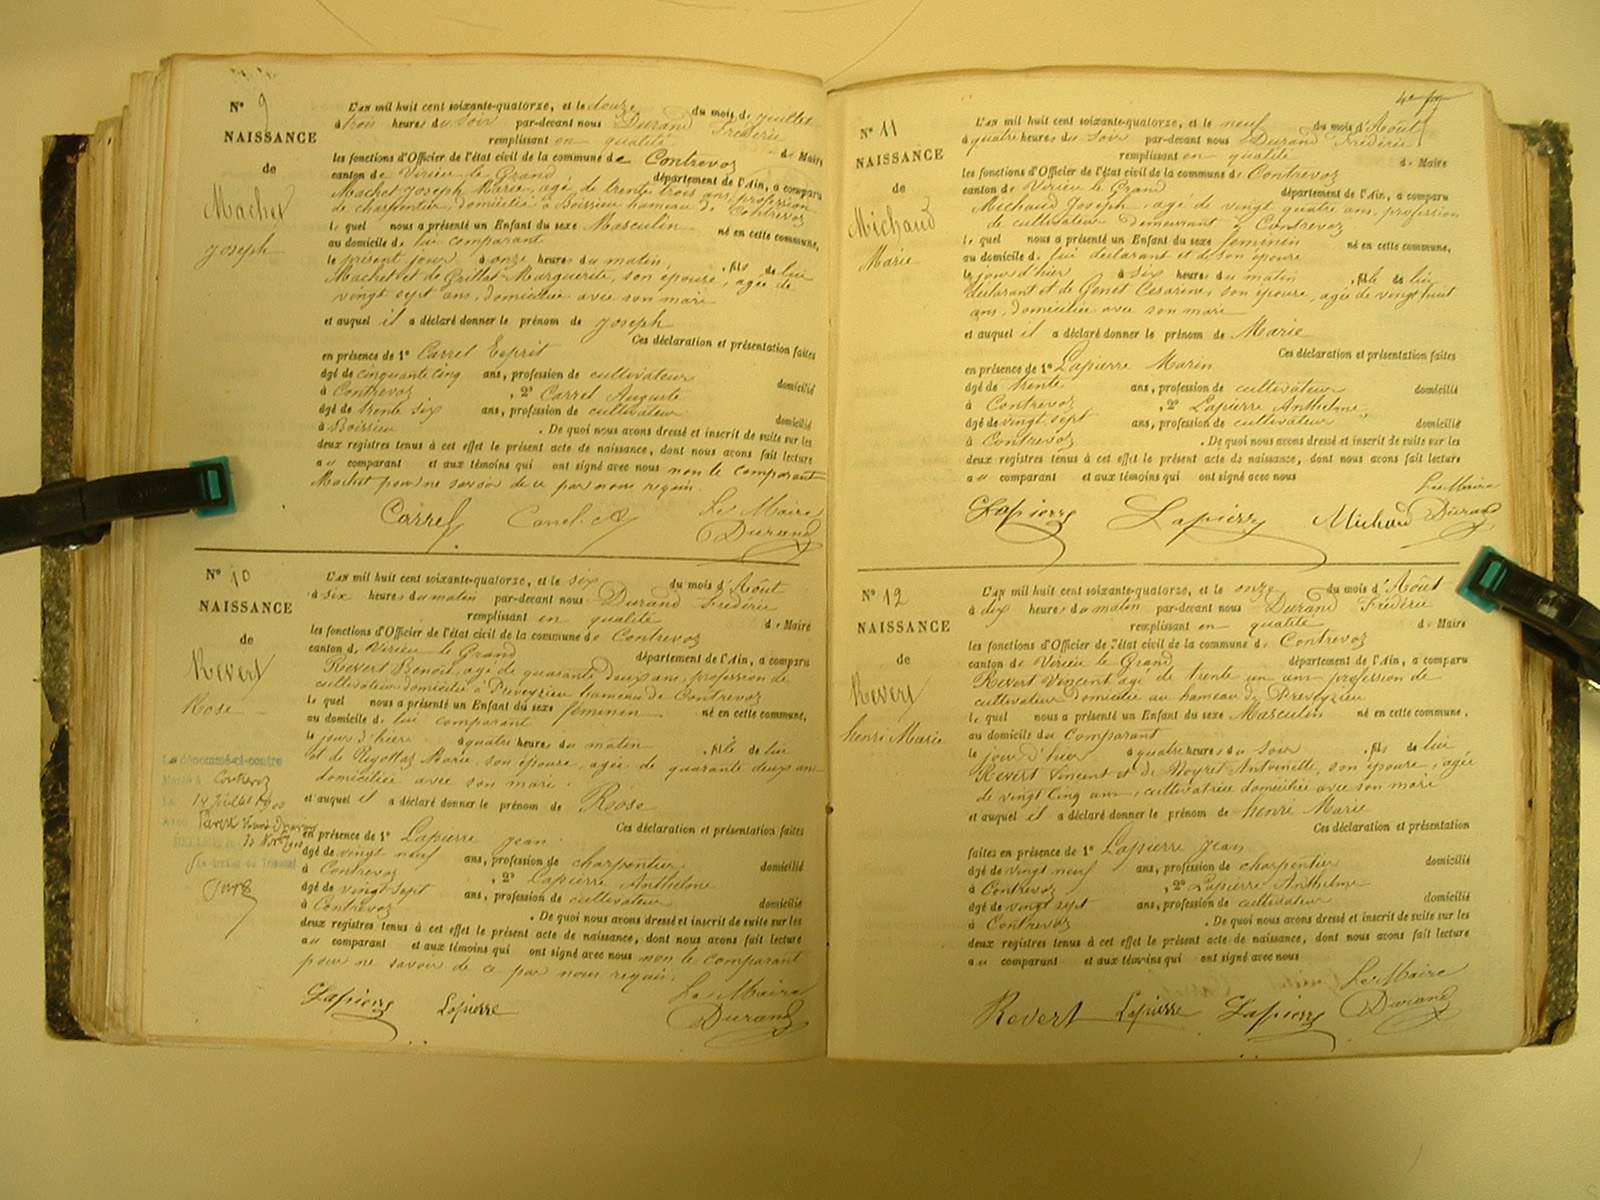 N° 9
NAISSANCE
de
Machet
Joseph
L'AN mil huit cent soixante-quatorze, et le douze du mois de juillet
à trois heures du soir par-devant nous Durand Frédéric
remplissant en qualité de Maire
les fonctions d'Officier de l'état civil de la commune de Contrevoz
canton de Virieu le Grand département de l'Ain, a comparu
Machet Joseph Marie, agé de trente trois ans, profession
de charpentier, domicilié à Boissieu hameau de Contrevoz
le quel nous a présenté un Enfant du sexe Masculin né en cette commune,
au domicile de lui comparant
le présent jour à onze heures du matin, fils de lui
Machet et de Grillet Marguerite, son épouse, agée de
vingt sept ans, domiciliée avec son mari
et auquel il a déclaré donner le prénom de Joseph
Ces déclaration et présentation faites
en présence de 1° Carrel Esprit
âgé de cinquante cinq ans, profession de cultivateur domicilié
à Contrevoz, 2° Carrel Auguste
âgé de trente six ans, profession de cultivateur domicilié
à Boissieu. De quoi nous avons dressé et inscrit de suite sur les
deux registres tenus à cet effet le présent acte de naissance, dont nous avons fait lecture
au comparant et aux témoins qui ont signé avec nous non le comparant
Machet pour ne savoir de ce par nous requis.
Carrel Carrel Le Maire
Durand
N° 10
NAISSANCE
de
Revert
Rose
L'AN mil huit cent soixante-quatorze, et le six du mois d'Août
à six heures du matin par-devant nous Durand Frédéric
remplissant en qualité de Maire
les fonctions d'Officier de l'état civil de la commune de Contrevoz
canton de Virieu le Grand département de l'Ain, a comparu
Revert Benoit, agé de quarante deux ans, profession de
cultivateur domicilié à Preveyzieu hameau de Contrevoz
le quel nous a présenté un Enfant du sexe féminin né en cette commune,
au domicile de lui comparant
le jour d'hier à quatre heures du matin, fille de lui
et de Rigollet Marie, son épouse, agée de quarante deux ans
domiciliée avec son mari.
et auquel il a déclaré donner le prénom de Roose
Ces déclaration et présentation faites
en présence de 1° Lapierre Jean
âgé de vingt neuf ans, profession de charpentier domicilié
à Contrevoz, 2° Lapierre Anthelme
âgé de vingt sept ans, profession de cultivateur domicilié
à Contrevoz. De quoi nous avons dressé et inscrit de suite sur les
deux registres tenus à cet effet le présent acte de naissance, dont nous avons fait lecture
au comparant et aux témoins qui ont signé avec nous non le comparant
pour ne savoir de ce par nous requis.
Lapierre Lapierre Le Maire
Durand
La dénommée ci-contre
Contrevoz
14 juillet 1900
Revert
N° 11
NAISSANCE
de
Michaud
Marie
L'AN mil huit cent soixante-quatorze, et le neuf du mois d'Août
à quatre heures du soir par-devant nous Durand Frédéric
remplissant en qualité de Maire
les fonctions d'Officier de l'état civil de la commune de Contrevoz
canton de Virieu le Grand département de l'Ain, a comparu
Michaud Joseph, agé de vingt quatre ans, profession
de cultivateur demeurant à Contrevoz
le quel nous a présenté un Enfant du sexe féminin né en cette commune,
au domicile de lui déclarant et de son épouse
le jour d'hier à six heures du matin, fille de lui
déclarant et de Genet Césarine, son épouse, agée de vingt huit
ans, domiciliée avec son mari
et auquel il a déclaré donner le prénom de Marie
Ces déclaration et présentation faites
en présence de 1° Lapierre Marin
âgé de trente ans, profession de cultivateur domicilié
à Contrevoz, 2° Lapierre Anthelme
âgé de vingt sept ans, profession de cultivateur domicilié
à Contrevoz. De quoi nous avons dressé et inscrit de suite sur les
deux registres tenus à cet effet le présent acte de naissance, dont nous avons fait lecture
au comparant et aux témoins qui ont signé avec nous
Le Maire
Lapierre Lapierre Michaud Durand
N° 12
NAISSANCE
de
Revert
henri Marie
L'AN mil huit cent soixante-quatorze, et le onze du mois d'Août
à dix heures du matin par-devant nous Durand Frédéric
remplissant en qualité de Maire
les fonctions d'Officier de l'état civil de la commune de Contrevoz
canton de Virieu le Grand département de l'Ain, a comparu
Revert Vincent agé de trente un ans profession de
cultivateur domicilié au hameau de Preveyzieu
le quel nous a présenté un Enfant du sexe Masculin né en cette commune,
au domicile du Comparant
le jour d'hier à quatre heures du soir, fils de lui
Revert Vincent et de Moyret Antoinette, son épouse, agée
de vingt cinq ans, cultivatrice domiciliée avec son mari
et auquel il a déclaré donner le prénom de henri Marie
Ces déclaration et présentation
faites en présence de 1° Lapierre Jean
âgé de vingt neuf ans, profession de charpentier domicilié
à Contrevoz, 2° Lapierre Anthelme
âgé de vingt sept ans, profession de cultivateur domicilié
à Contrevoz. De quoi nous avons dressé et inscrit de suite sur les
deux registres tenus à cet effet le présent acte de naissance, dont nous avons fait lecture
au comparant et aux témoins qui ont signé avec nous
Le Maire
Revert Lapierre Lapierre Durand